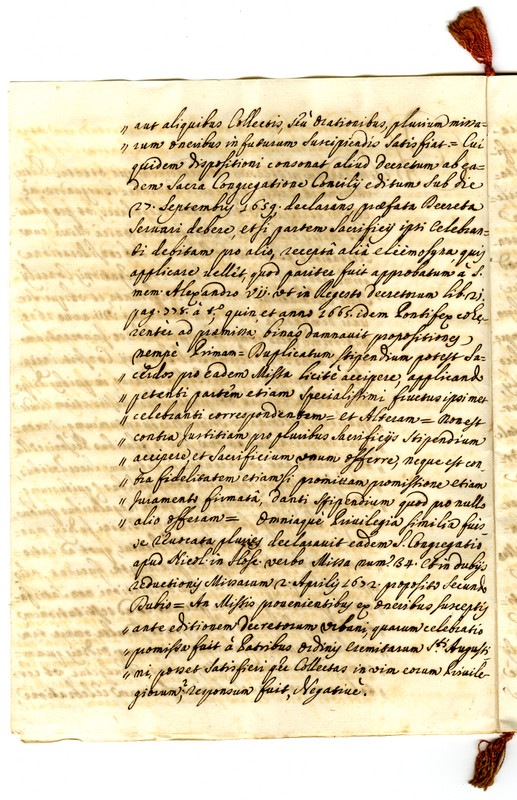 „ aut aliquibus Collectis, seù Orationibus, plurium missa-
„ rum oneribus in futurum suscipiendis satisfiat = Cui
quidem dispositioni consonat aliud decretum ab ea-
dem Sacra Congregatione Concilij editum sub die
27. Septembris 1659. declarans præfata Decreta
servari debere, etsi partem Sacrificij ipsi Celebran-
ti debitam pro alio, receptâ aliâ eleemosyna quis
applicare vellet, quod pariter fuit approbatum à S.
mem. Alexandro VII. ut in Regesto decretorum libr.
pag. à t.º quin et anno 1665. idem Pontifex cohe-
renter ad præmissa binas damnavit propositiones,
nempè Primam = Duplicatum stipendium potest Sa-
„ cerdos pro eadem Missa licitè accipere, applicando
„ petenti partem etiam specialissimi fructus ipsimet
„ celebranti correspondentem = et Alteram = Non est
„ contra Justitiam pro pluribus Sacrificijs stipendium
„ accipere, et Sacrificium unum offerre, neque est con
„ tra fidelitatem etiamsi promittam promissione etiam
„ Juramento firmatâ, danti stipendium quod pro nullo
„ alio offeram = Omniaquè Privilegia similia fuis-
se revocata pluries declaravit eadem S. Congregatio
apud Nicol. in flosc. verbo Missa num.º 34. Et in dubijs
reductionis Missarum 2. Aprilis 1632. proposito secundo
Dubio = An Missis provenientibus ex oneribus susceptis
„ ante editionem decretorum Urbani, quarum celebratio
„ promissa fuit à Patribus Ordinis Eremitarum S.ti Augusti-
„ ni, posset satisfieri per Collectas in vim eorum Privile-
giorum, responsum fuit, Negativè.